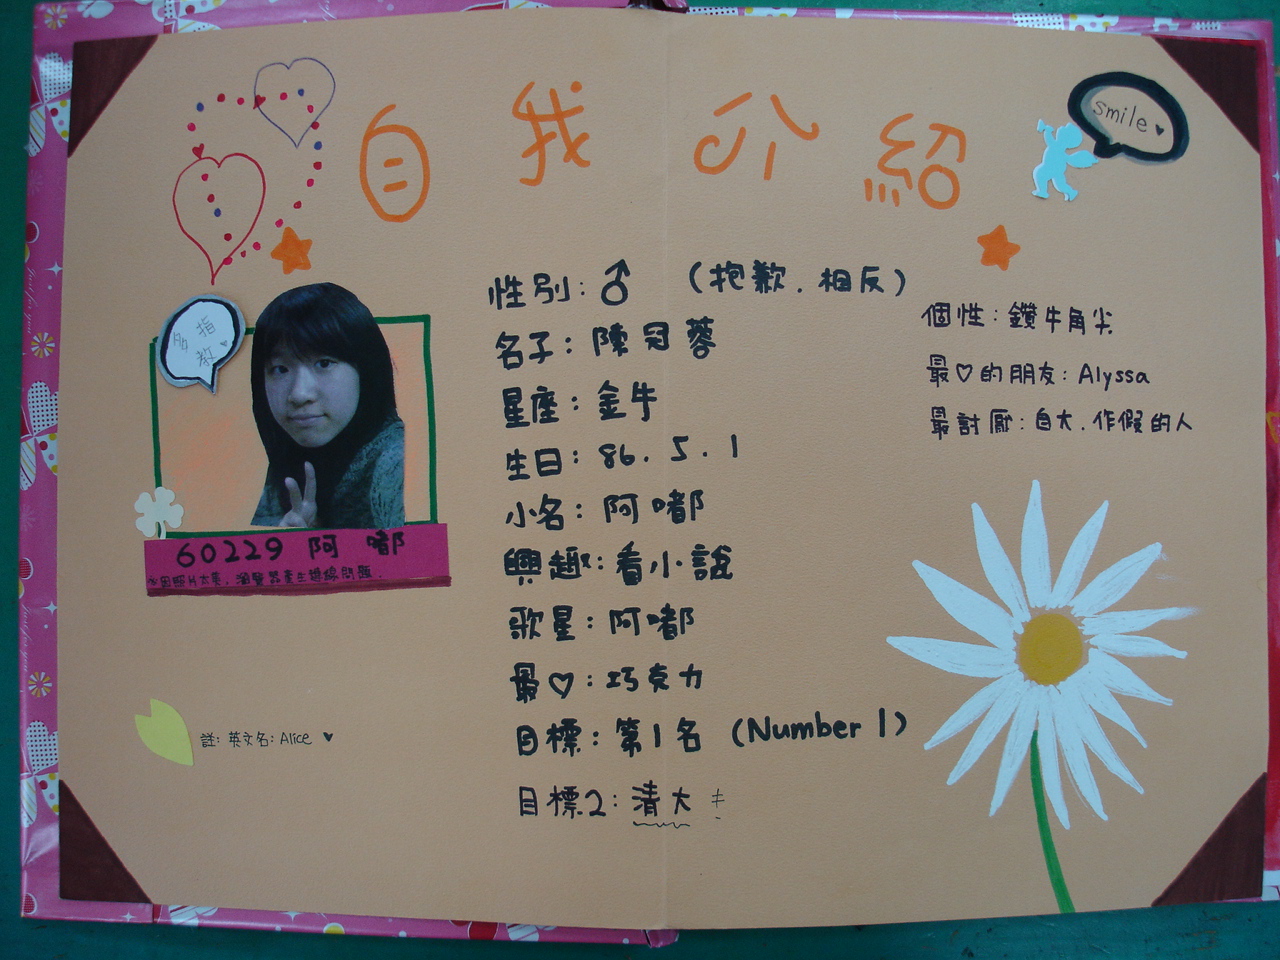 自我介紹
smile
多指教
60229 阿嘟
註: 英文名: Alice
性別: ♂ (抱歉. 相反)
名子: 陳冠蓉
星座: 金牛
生日: 86. 5. 1
小名: 阿嘟
興趣: 看小說
歌星: 阿嘟
最♡: 巧克力
目標: 第1名 (Number 1)
目標2: 清大
個性: 鑽牛角尖
最♡的朋友: Alyssa
最討厭: 自大. 作假的人